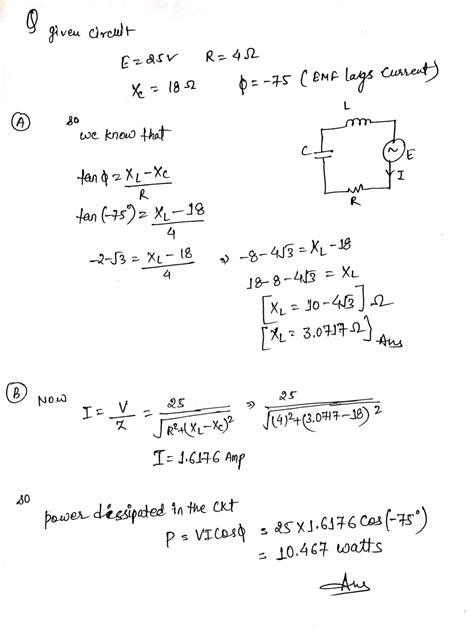 Q given circuit
E = 25V R = 4Ω
Xc = 18Ω ϕ = -75 (EMF lags current)
(A) so
we know that
tanϕ = XL - Xc / R
tan(-75°) = XL - 18 / 4
-2-√3 = XL - 18 / 4 ⇒ -8-4√3 = XL - 18
18-8-4√3 = XL
[XL = 10-4√3] Ω
[XL = 3.0717 Ω] Ans
L
C
E
I
R
(B) Now
I = V / Z = 25 / √R²+(XL-Xc)² ⇒ 25 / √(4)²+(3.0717-18)²
I = 1.6176 Amp
so
power dissipated in the ckt
P = VI cosϕ = 25 x 1.6176 cos(-75°)
= 10.467 watts
Ans